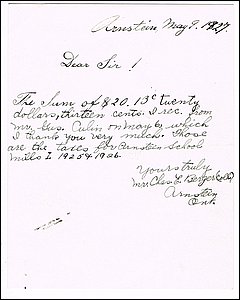 Arnstein, May 9. 1927.
Dear Sir!
The Sum of $20.13c twenty
dollars, thirteen cents. I rec. from
Mr. Gus. Culin on May 6, which
I thank you very much. Those
are the taxes for Arnstein School
Mills I 1925 & 1926.
Yours truly
Mrs Chas L Berger
Arnstein
Ont.